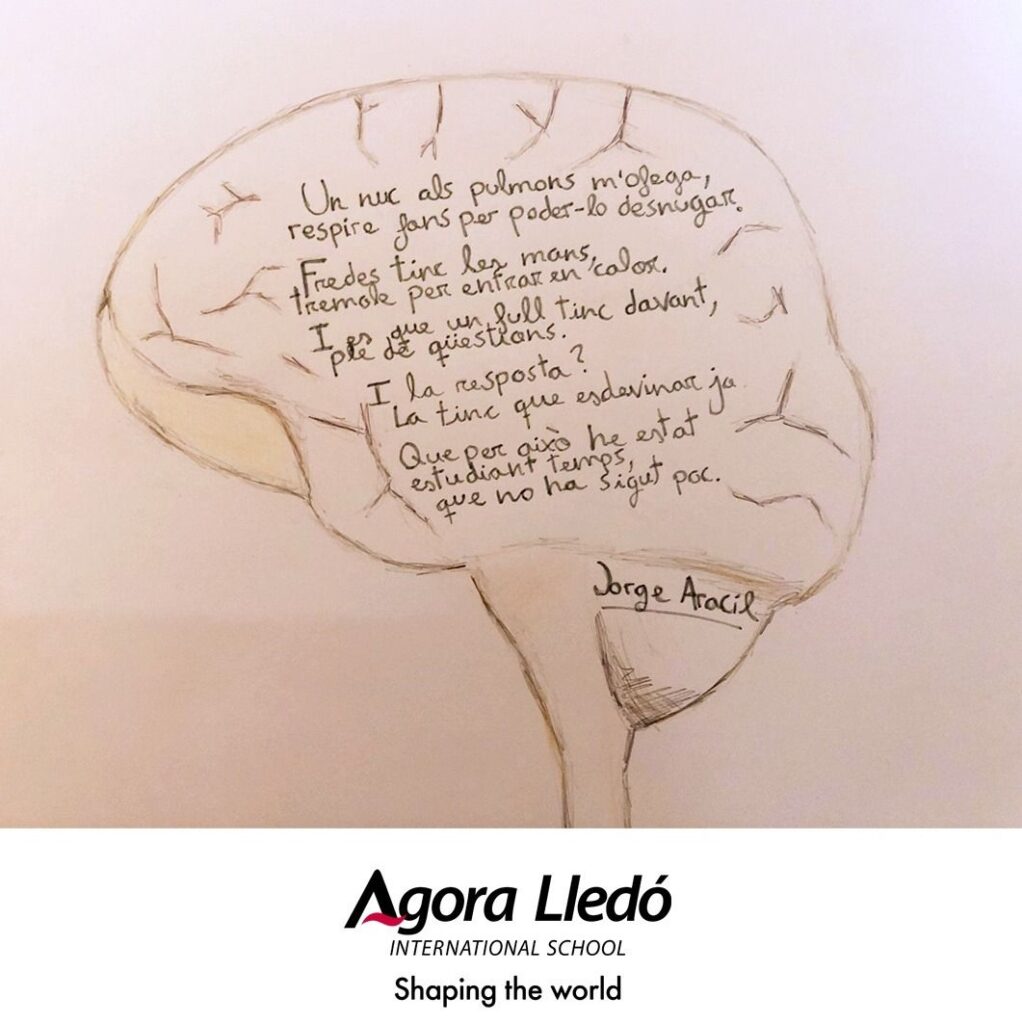 Un nuc als pulmons m'ofega,
respire fans per poder-lo desnugar.
Fredes tinc les mans,
tremole per entrar en calor.
I es que un full tinc davant,
ple de qüestions.
I la resposta?
La tinc que esdevinar ja
Que per això he estat
estudiant temps,
que no ha sigut poc.
Jorge Aracil
Agora Lledó
INTERNATIONAL SCHOOL
Shaping the world